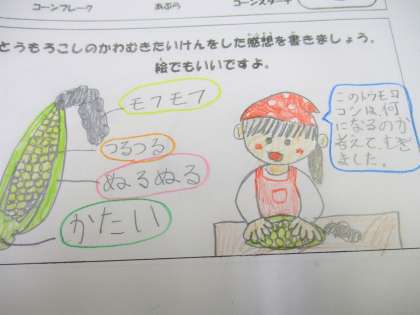 コーンフレーク
あぶら
コーンスターチ
とうもろこしのかわむきたいけんをした感想を書きましょう。
絵でもいいですよ。
モフモフ
つるつる
ぬるぬる
かたい
このトウモロ
コシは、何
になるのか
考えて、むき
ました。